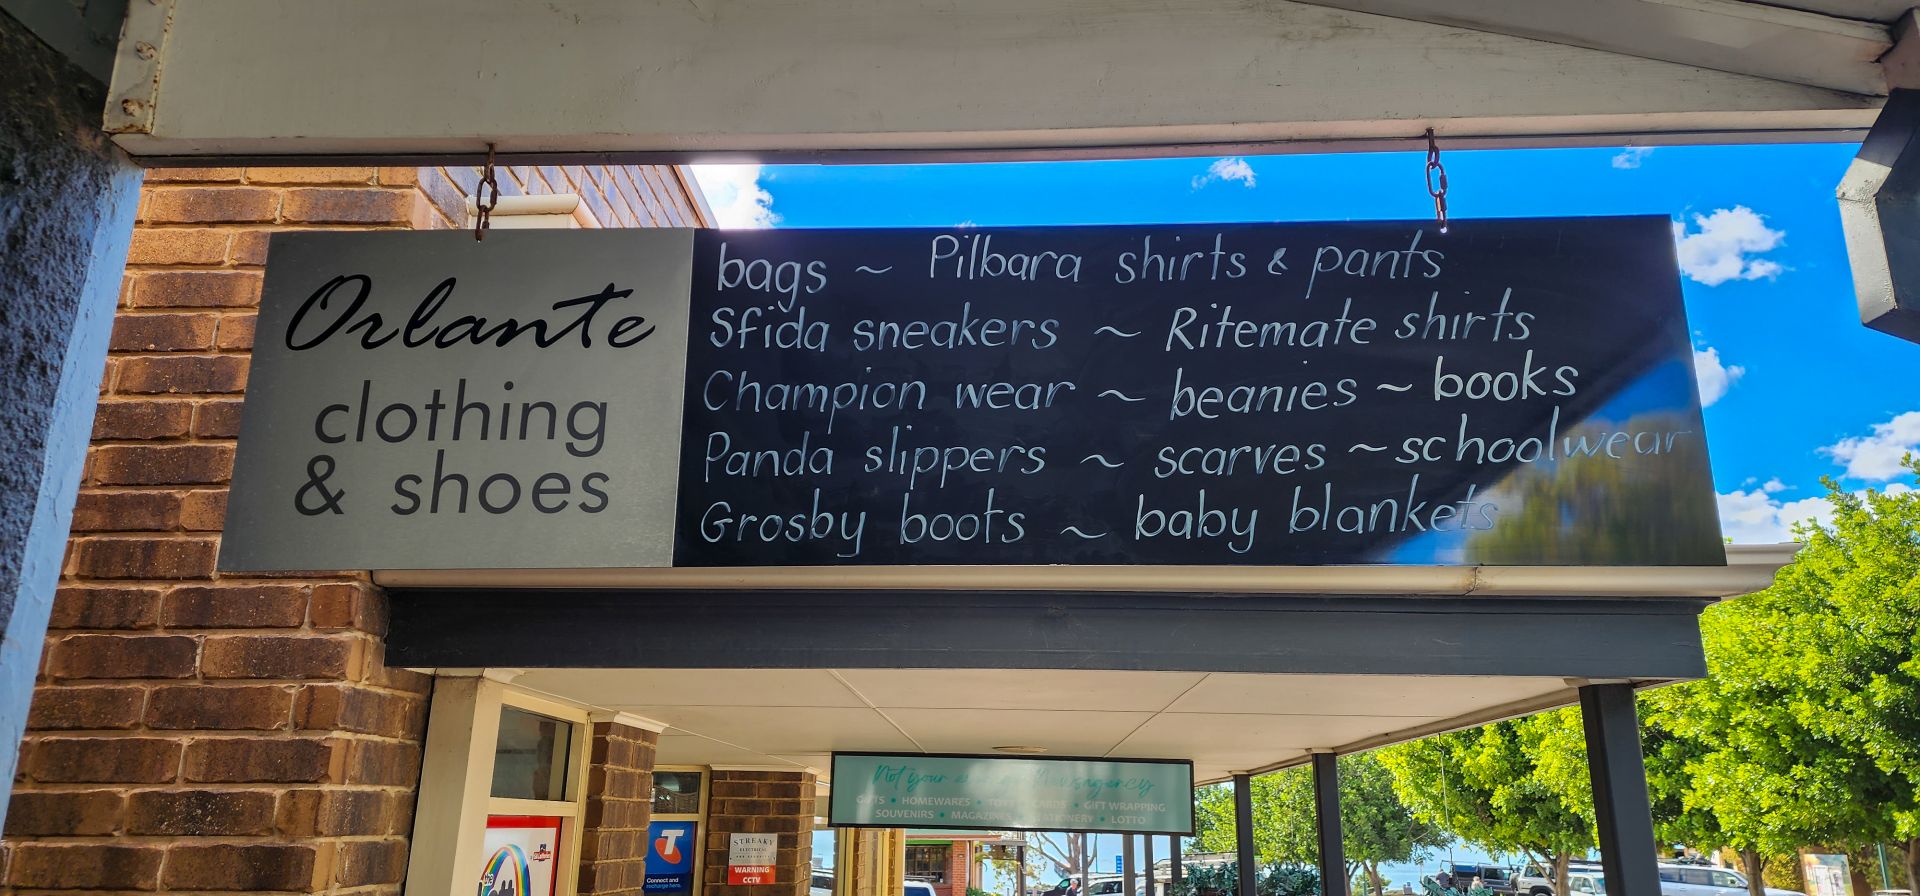 Orlante
clothing
& shoes
bags ~ Pilbara shirts & pants
Sfida sneakers ~ Ritemate shirts
Champion wear ~ beanies ~ books
Panda slippers ~ scarves ~ schoolwear
Grosby boots ~ baby blankets
Not your Newsagency
GIFTS • HOMEWARES • TOYS • CARDS • GIFT WRAPPING
SOUVENIRS • MAGAZINES • STATIONERY • LOTTO
T
Connect and
recharge here.
STREAKY
ELECTRICAL
WARNING
CCTV
the